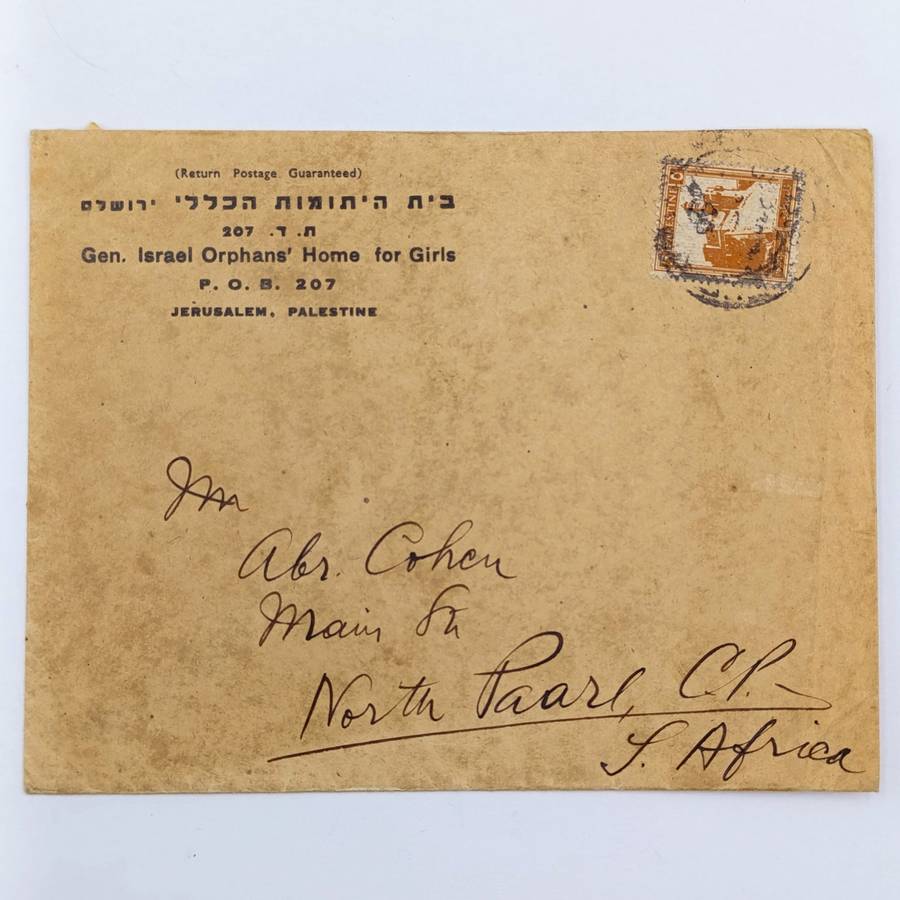 (Return Postage Guaranteed)
בית היתומות הכללי ירושלם
ת. ד. 207
Gen. Israel Orphans' Home for Girls
P. O. B. 207
JERUSALEM, PALESTINE
PALESTINE
Mr
Abr. Cohen
Main St
North Paarl, C.P.
S. Africa